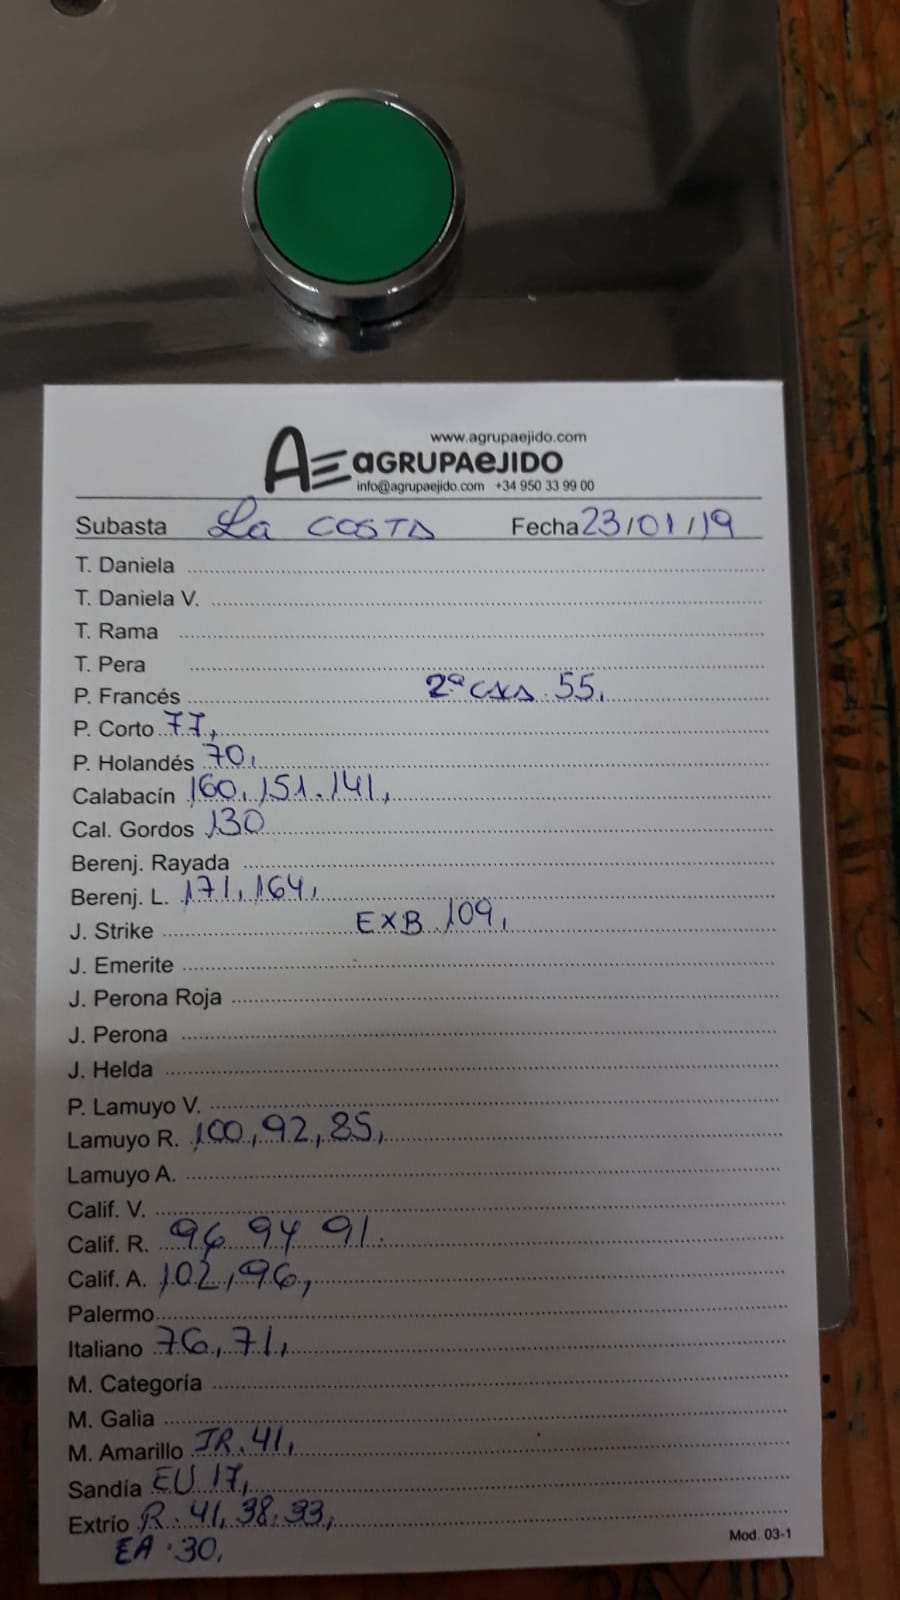 www.agrupaejido.com
AE aGRUPAeJIDO
info@agrupaejido.com +34 950 33 99 00
Subasta La COSTA Fecha 23/01/19
T. Daniela
T. Daniela V.
T. Rama
T. Pera
P. Francés 2ª CXA 55,
P. Corto 77,
P. Holandés 70,
Calabacín 160, 151. 141,
Cal. Gordos 130
Berenj. Rayada
Berenj. L. 171, 164,
J. Strike EXB 109,
J. Emerite
J. Perona Roja
J. Perona
J. Helda
P. Lamuyo V.
Lamuyo R. 100, 92, 85,
Lamuyo A.
Calif. V.
Calif. R. 96 94 91.
Calif. A. 102, 96,
Palermo
Italiano 76, 71,
M. Categoría
M. Galia
M. Amarillo IR. 41,
Sandía EU 17,
Extrío R. 41, 38. 33,
EA. 30,
Mod. 03-1